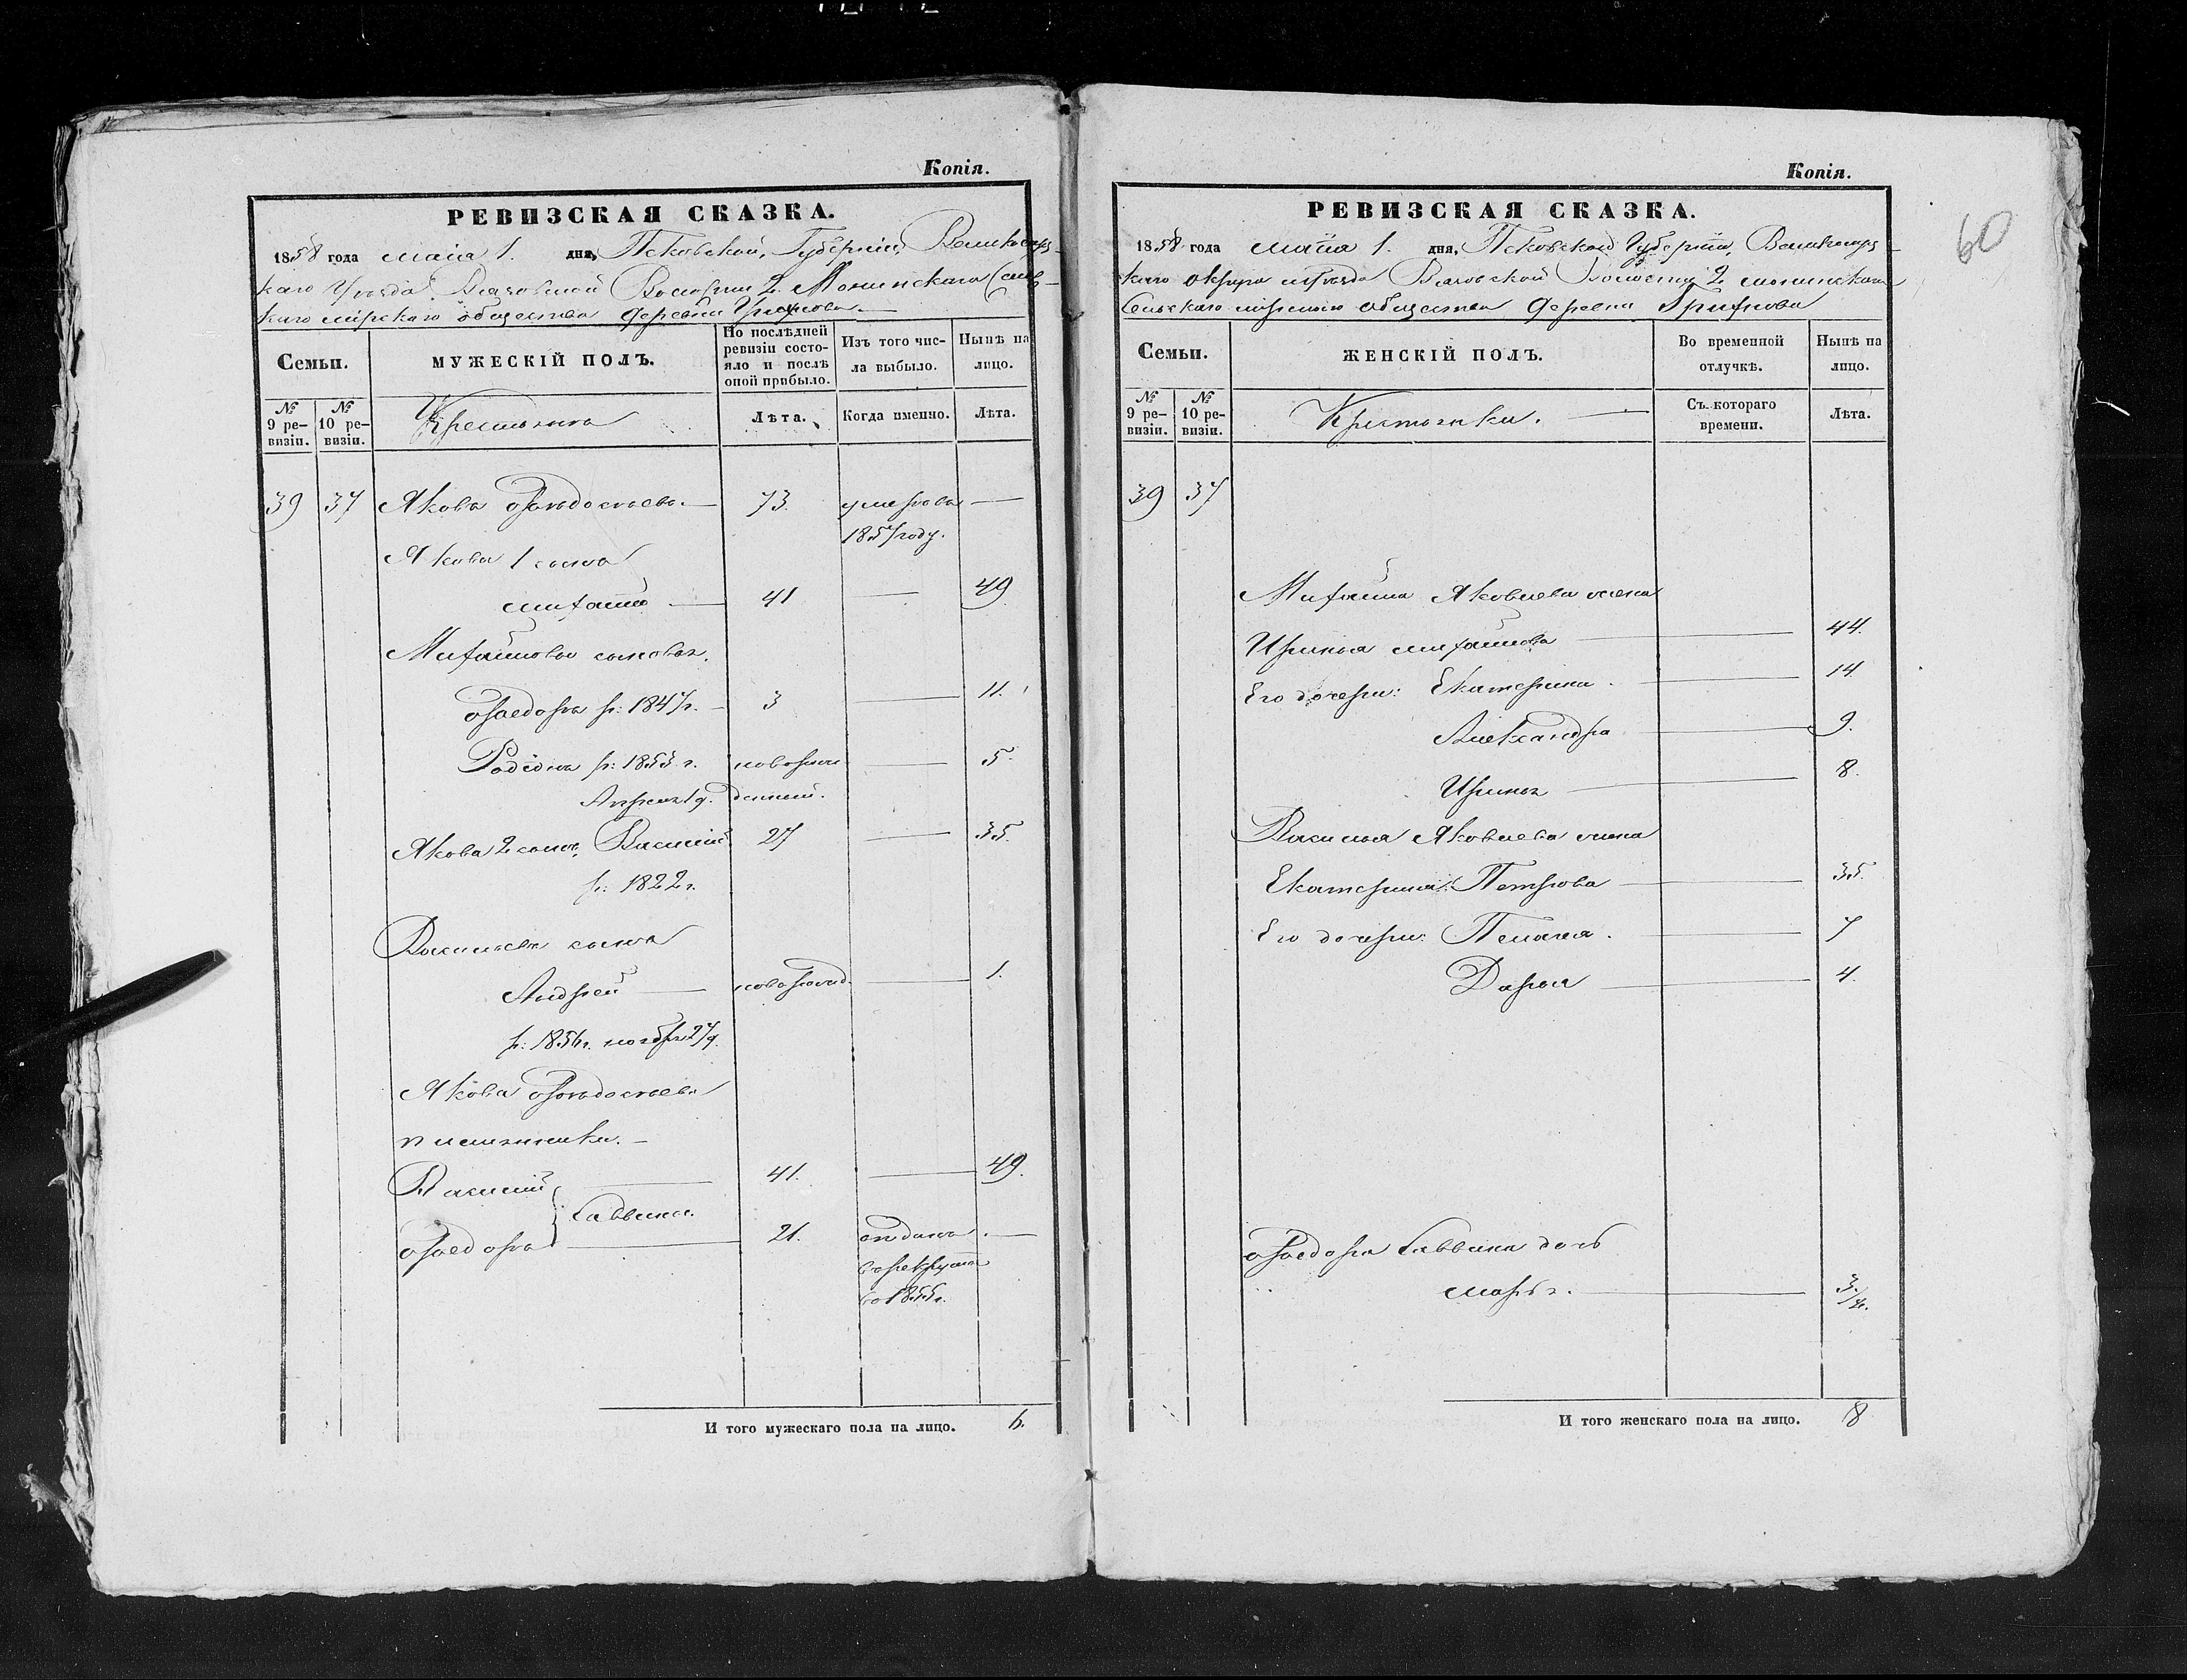 Копія.
РЕВИЗСКАЯ СКАЗКА.
1858 года маія 1. дня, Псковской, Губерніи, Великолуц-
каго Уѣзда Волости 2. Монинскаго Сель-
скаго мірскаго общества деревни
Семьи.
МУЖЕСКІЙ ПОЛЪ.
По послѣдней ревизіи состо-яло и послѣ оной прибыло.
Изъ того чис-ла выбыло.
Нынѣ на лицо.
№ 9 ре-визіи.
№ 10 ре-визіи.
Крестьяна
Лѣта.
Когда именно.
Лѣта.
39 37 Яковъ — 73. умеръ въ —
1857 году.
Якова 1 сынъ
Михайло — 41 — 49.
Михайловы сыновья.
Ѳаедоръ р: 1847 г. — 3 — 11.
Родіонъ р: 1853 г. новорож — 5.
Апреля 1 д. денный.
Якова 2 сынъ, Василій 27 — 35.
р: 1822 г.
Васильевъ сынъ
Андрей — новорожд. — 1.
р: 1856 г. ноября 27 д.
Якова
племянники. —
Василій — 41. — 49.
Саввины.
Ѳаедоръ — 21. отданъ. —
в рекруты
во 1855 г.
И того мужескаго пола на лицо. 6.
Копія.
60
РЕВИЗСКАЯ СКАЗКА.
1858 года маія 1. дня, Псковской Губерніи, Великолуц-
каго округа и уѣзда Волости 2 монинскаго
Сельскаго мірскаго общества деревни
Семьи.
ЖЕНСКІЙ ПОЛЪ.
Во временной отлучкѣ.
Нынѣ на лицо.
№ 9 ре-визіи.
№ 10 ре-визіи.
Крестьянки. —
Съ котораго времени.
Лѣта.
39 37
Михайла Яковлева жена
Иринья михайлова — 44.
Его дочери: Екатерина. — 14.
Александра — 9.
Иринья — 8.
Василья Яковлева жена
Екатерина Петрова — 35.
Его дочери: Пелагея. — 7
Дарья — 4.
Ѳаедора Саввина дочь
марья. — 3/4.
И того женскаго пола на лицо. 8